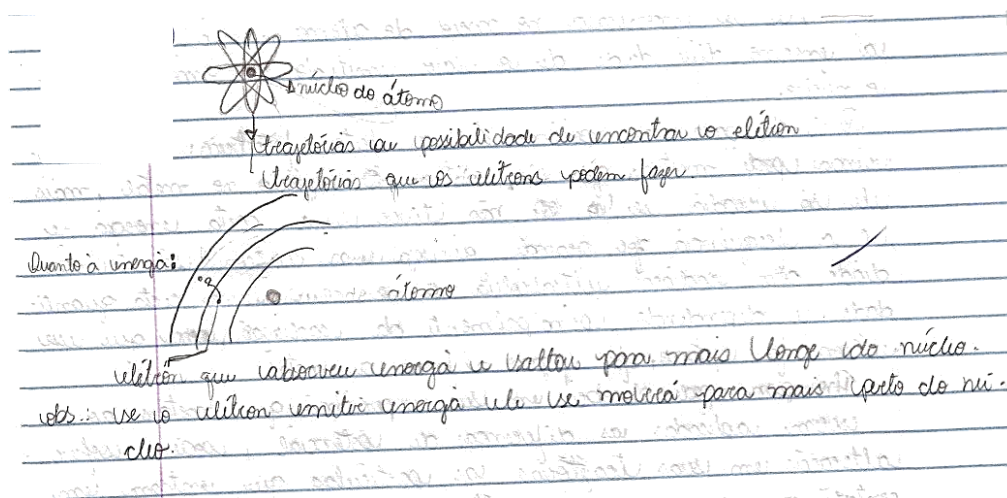 núcleo do átomo
trajetórias ou possibilidade de encontrar o elétron
trajetórias que os elétrons podem fazer.
Quanto à energia:
átomo
elétron que absorveu energia e saltou para mais longe do núcleo.
obs.: se o elétron emitir energia ele se moverá para mais perto do nú-
cleo.